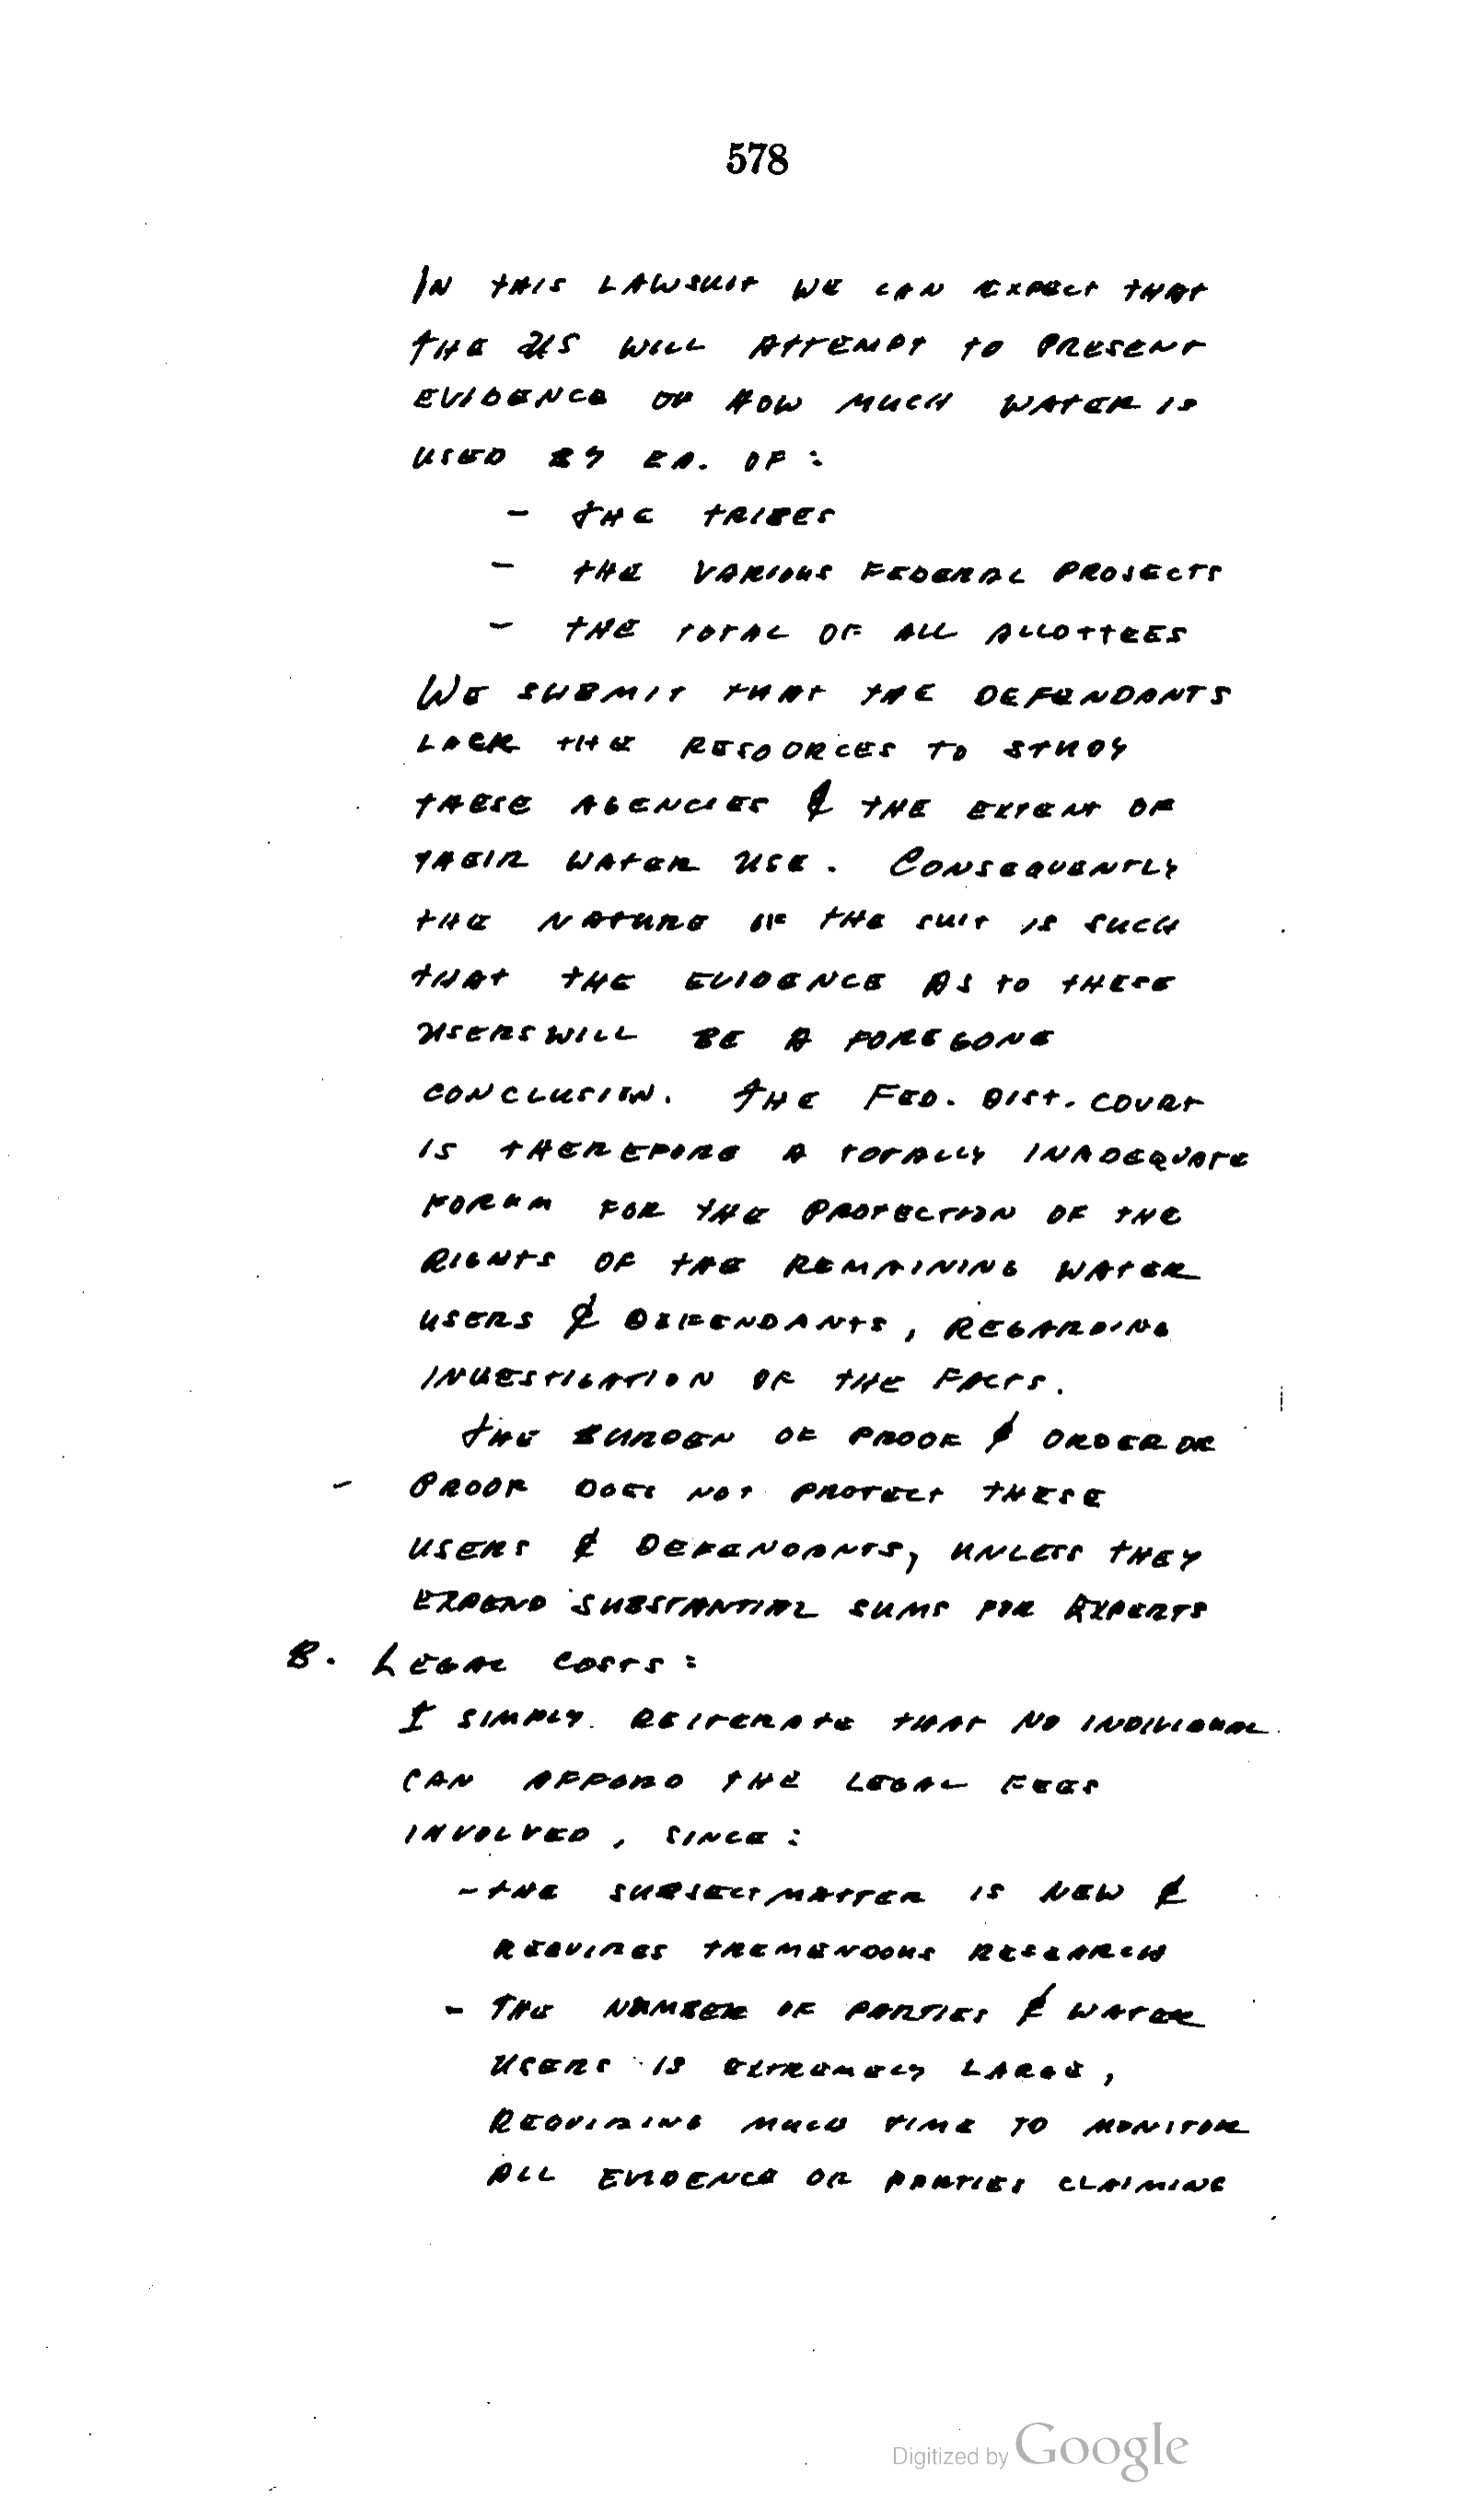 578
In this lawsuit we can expect that
the US will attempt to present
evidence of how much water is
used by ea. of:
- the tribes
- the various Federal projects
- the total of all allottees
We submit that the defendants
lack the resources to study
these agencies & the extent of
their water use. Consequently
the nature of the suit is such
that the evidence as to these
users will be a foregone
conclusion. The Fed. Dist. Court
is therefore a totally inadequate
forum for the protection of the
rights of the remaining water
users & defendants, regarding
investigation of the facts.
The burden of proof & order of
- proof does not protect these
users & defendants, unless they
expend substantial sums for experts
B. Legal costs:
I simply reiterate that no individual
can afford the legal fees
involved, since:
- the subject matter is new &
requires tremendous research
- The number of parties & water
users is extremely large,
requiring much time to monitor
all evidence or parties claiming
Digitized by Google